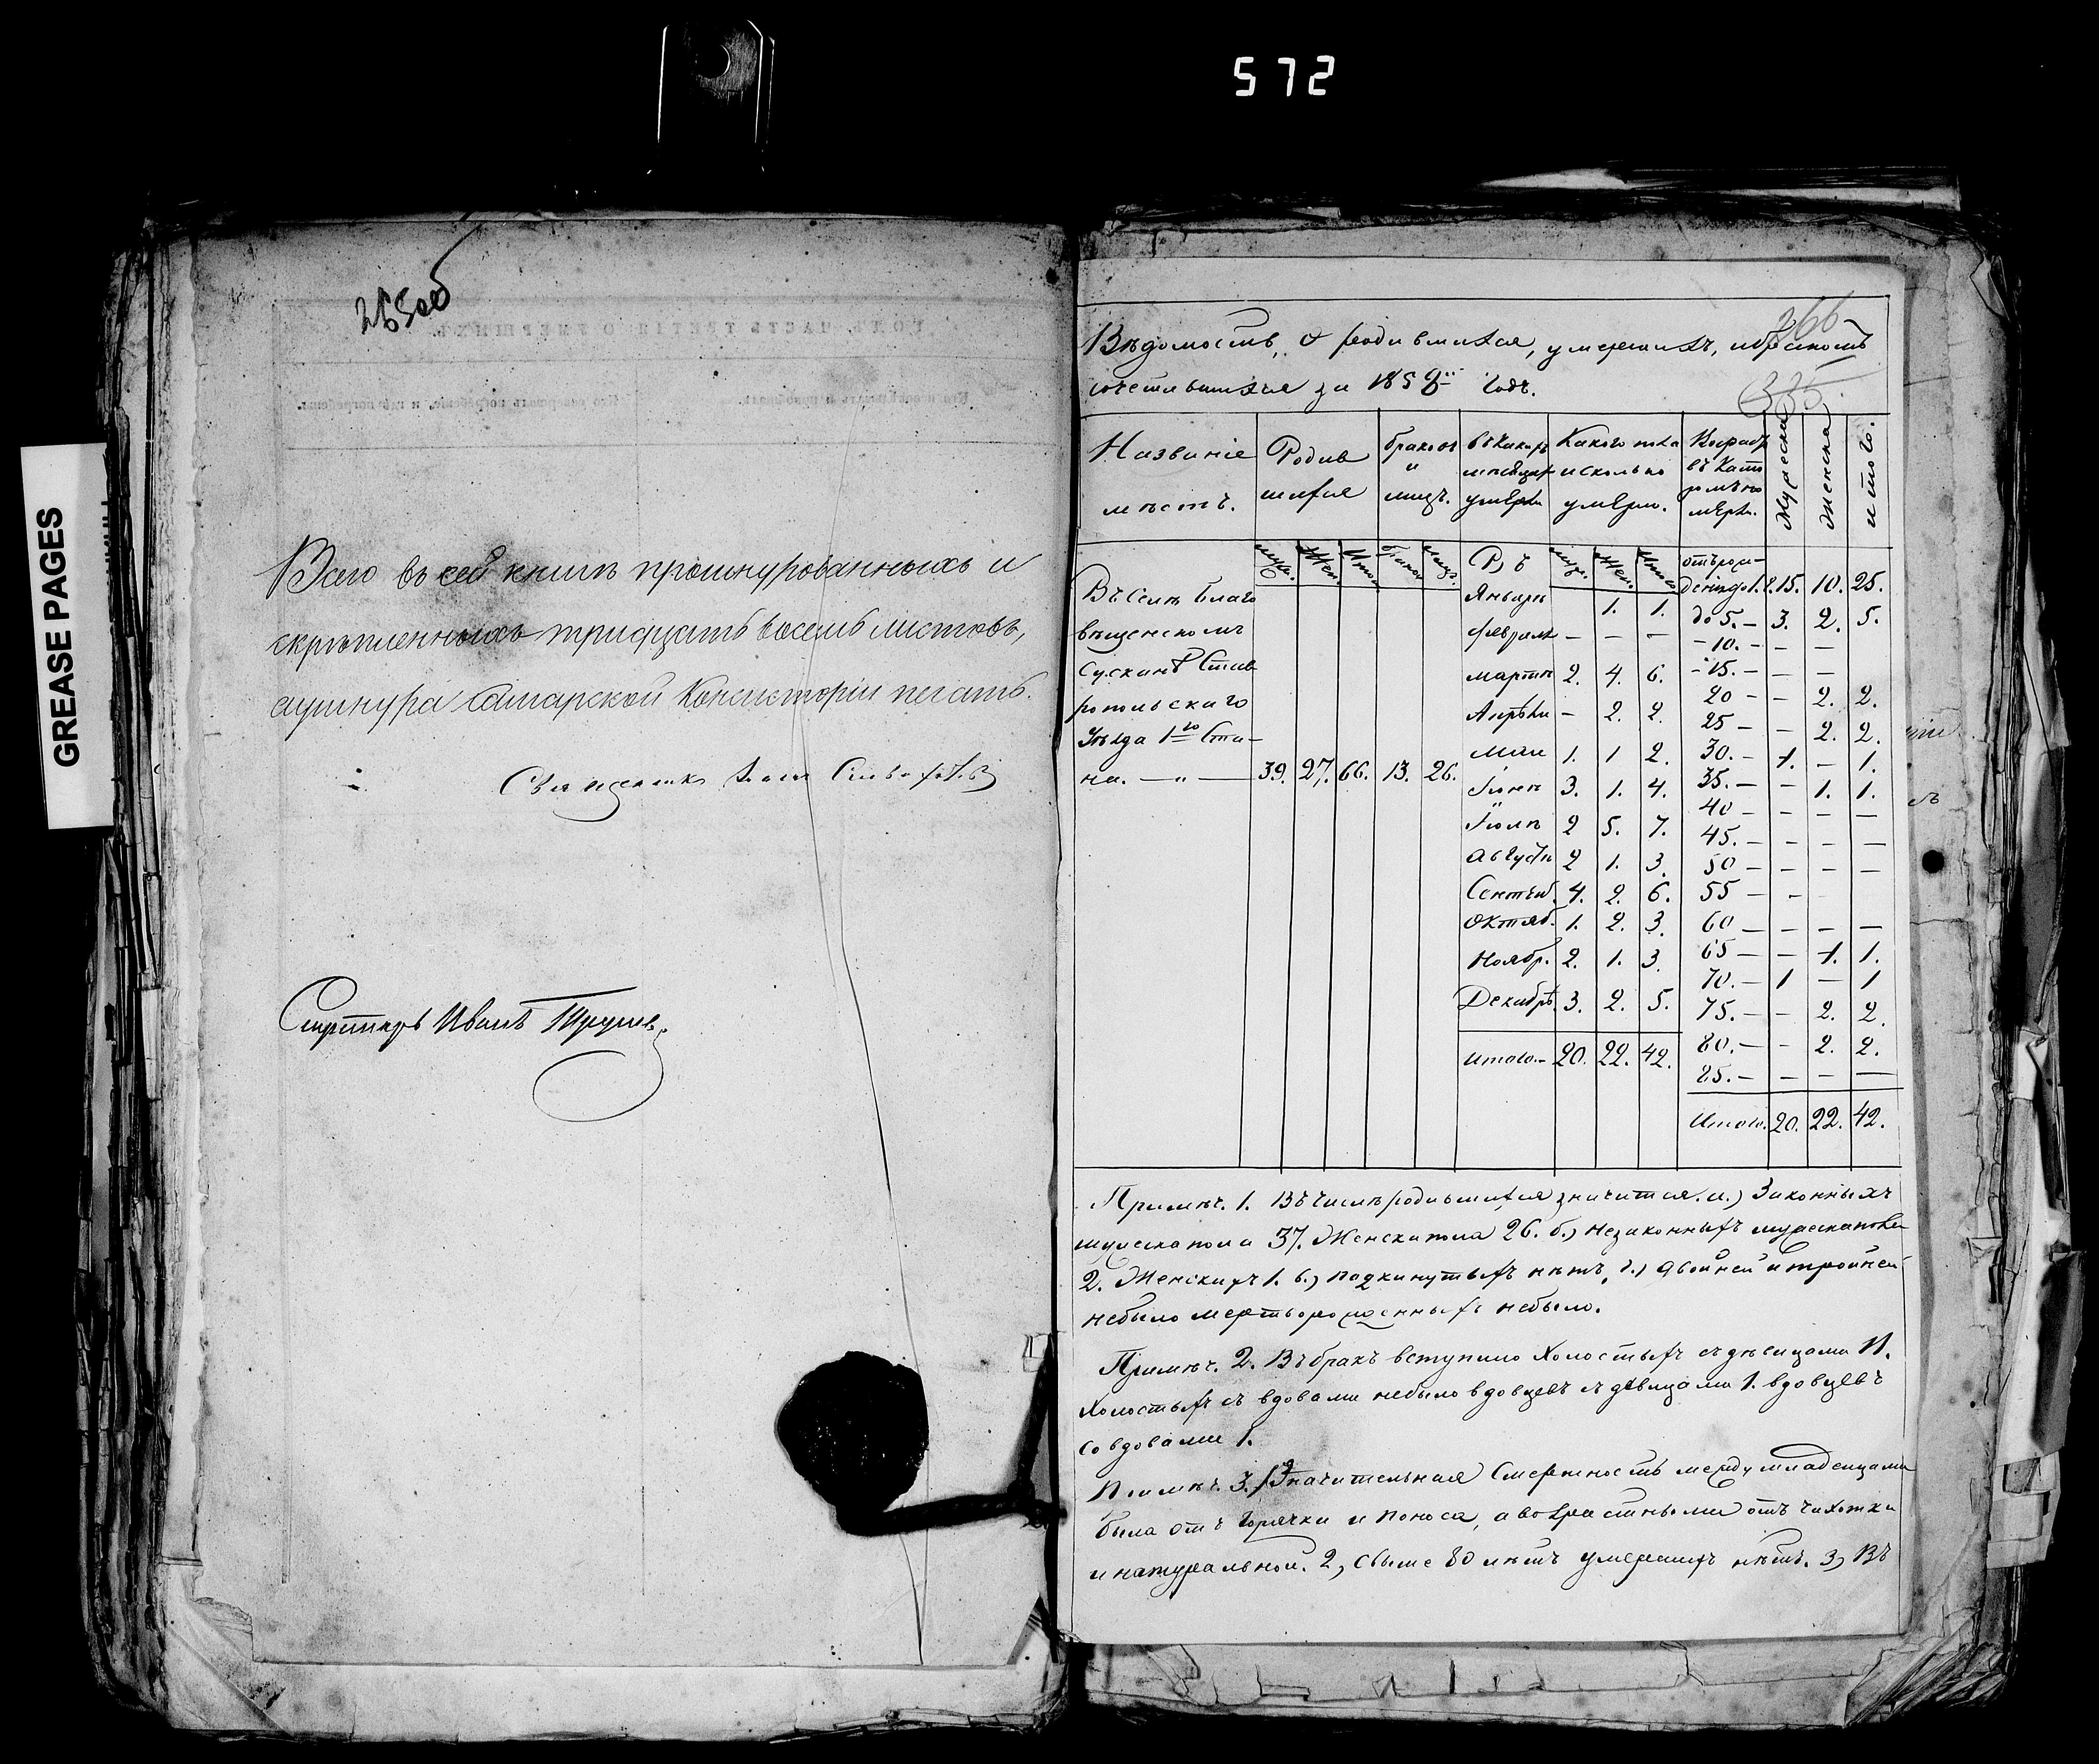 572
GREASE PAGES
265об
Всего въ сей книгѣ прошнурованныхъ и
скрѣпленныхъ тридцать восемь листовъ,
ушнура Самарской Консисторіи печать.
Священникъ
Секретарь Иванъ
266
335
Вѣдомость, о родившихся, умершихъ, и бракомъ
сочетавшихся за 1858й годъ.
Названіе мѣстъ.
Родив шихся
браковъ и лицъ.
въ какихъ мѣсяцах умерли
Какого пола и сколько умерло.
Возраст въ кото ромъ по мерли.
Мужеска
Женска
и того.
муж. Жен. Итог Брако Лицъ. Въ муж. Жен. Итого
Въ Селѣ Благо
вѣщенскомъ
Сусканѣ Став
ропольскаго
Уѣзда 1го Ста-
на. — " — 39. 27. 66. 13. 26.
Январѣ 1. 1.
февралѣ — — —
мартѣ 2. 4. 6.
Апрѣли — 2. 2.
Маи 1. 1 2.
Іюнѣ 3. 1. 4.
Іюлѣ 2 5. 7.
Августѣ 2 1. 3.
Сентяб. 4. 2. 6.
Октяб. 1. 2. 3.
Ноябр. 2. 1. 3.
Декабрѣ 3. 2. 5.
Итого.- 20. 22. 42.
отъ рож-
денія до 1. г. 15. 10. 25.
до 5. — 3. 2. 5.
- 10. - - —
- 15. — — —
20 — — 2. 2.
25 — — 2. 2.
30. — 1. — 1.
35. — — 1. 1.
40 — — — —
45. — — — —
50 — — — —
55 — —
60 — — — —
65 — — 1. 1.
70. — 1 — 1
75. — — 2. 2.
80. — — 2. 2.
85. — — — —
Итого. 20. 22. 42.
Примѣч. 1. Въ числѣ родившихся значится. а.) Законныхъ
мужеска пола 37. Женска пола 26. б.) незаконныхъ мужеска пола
2. Женскихъ 1. в.) подкинутыхъ нѣтъ, г.) двойней и тройней
небыло мертворожденныхъ небыло.
Примѣч. 2. Въ бракъ вступило Холостыхъ съ дѣвицами 11.
Холостыхъ съ вдовами небыло вдовцевъ съ дѣвицами 1. вдовцевъ
со вдовами 1.
Примѣч. 3. Значительная Смертность между младенцами
была отъ горячки и поноса, а возрастными отъ чахотки
и натуральной. 2, свыше 80 лѣтъ умершихъ нѣтъ. 3, Въ